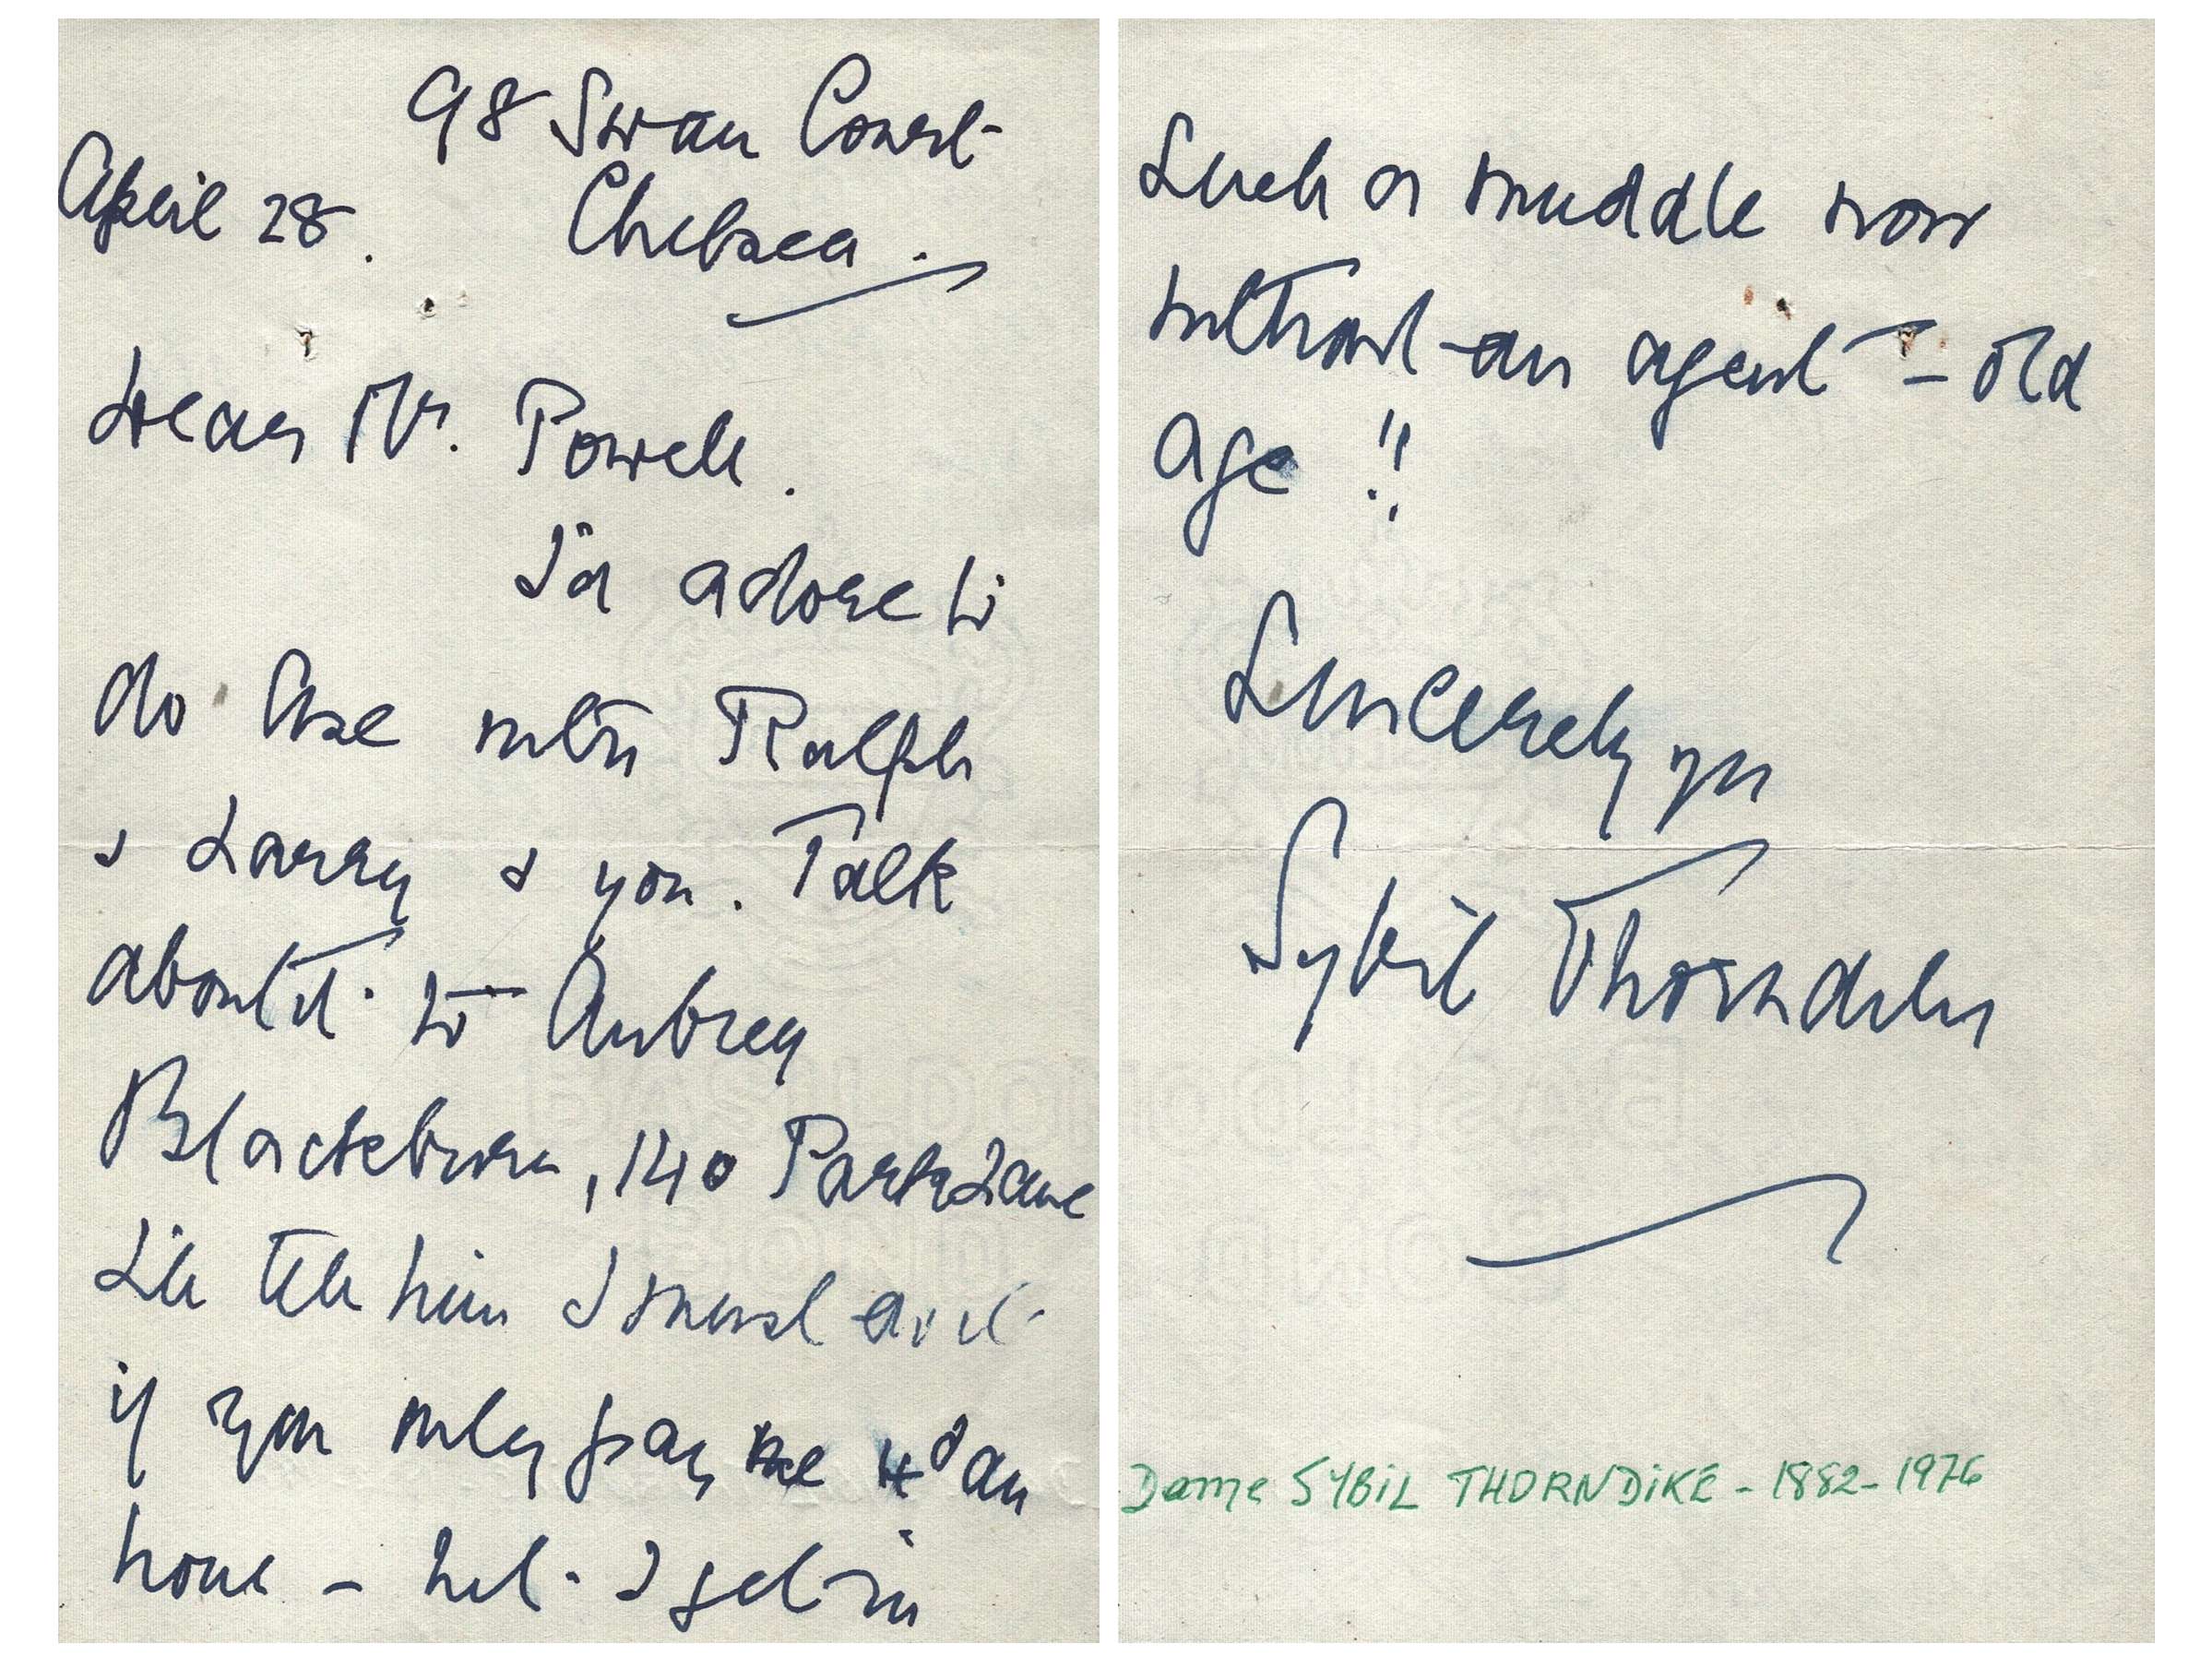 98 Swan Court
April 28. Chelsea.
Dear Mr. Powell.
I'd adore to
do with Ralph
& Larry & you. Talk
about it to Aubrey
Blackburn, 140 Park Lane
I'll tell him I must it
if you only pay me 4d an
hour – but I get in
such a muddle now
without an agent – old
age !!
Sincerely yrs
Sybil Thorndike
Dame SYBIL THORNDIKE - 1882-1976